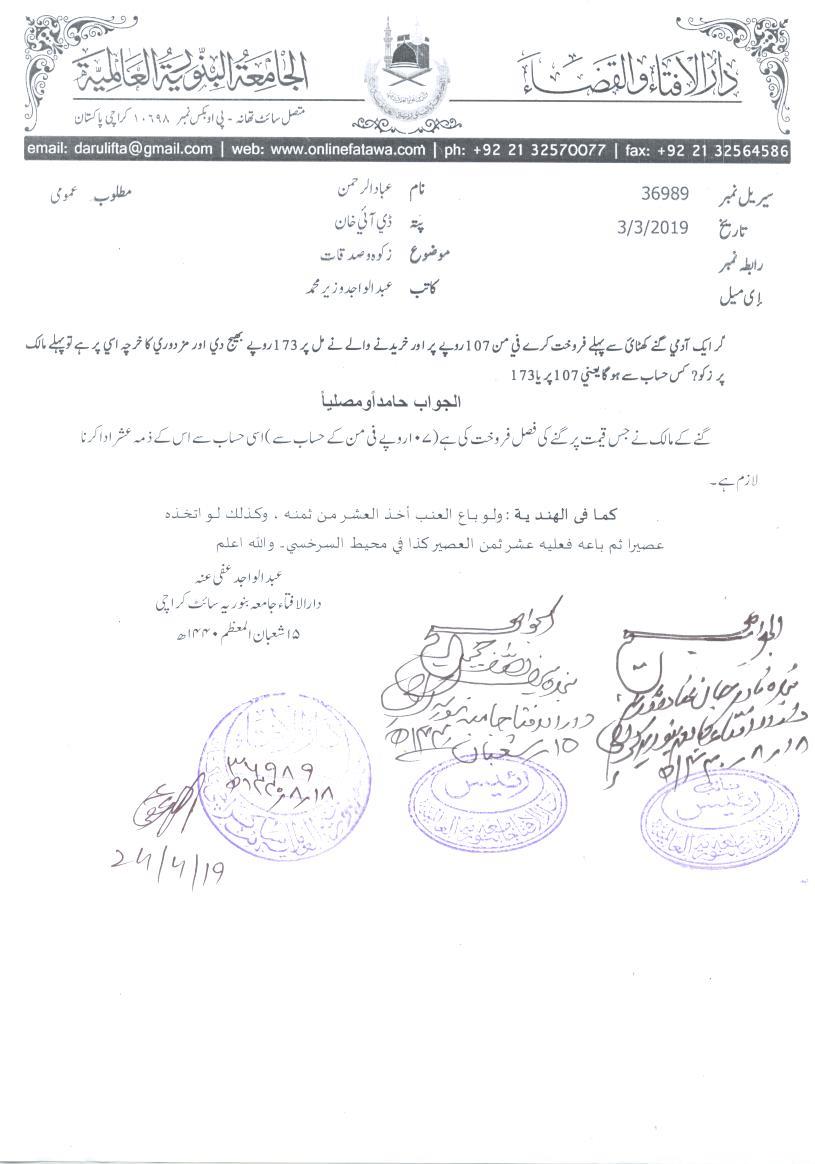 دارالافتاء والقضاء
الجامعة البنورية العالمية
متصل سائٹ تھانہ - پی او بکس نمبر ۱۰۶۹۸ کراچی پاکستان
email: darulifta@gmail.com | web: www.onlinefatawa.com | ph: +92 21 32570077 | fax: +92 21 32564586
سیریل نمبر 36989 نام عبادالرحمن مطلوب عمومی
تاریخ 3/3/2019 پتہ ڈی آئی خان
رابطہ نمبر موضوع زکوہ وصدقات
إی میل کاتب عبدالواجد وزیر محمد
گر ایک آدمي گنے کھٹائ سے پہلے فروخت کرے في من 107 روپے پر اور خریدنے والے نے مل پر 173 روپے بھیج دي اور مزدوري کا خرچہ اسي پر ہے تو پہلے مالک
پر زکو? کس حساب سے ہوگا یعني 107 پر یا 173
الجواب حامداً ومصلیاً
گنے کے مالک نے جس قیمت پر گنے کی فصل فروخت کی ہے (۱۰۷ روپے فی من کے حساب سے) اسی حساب سے اس کے ذمہ عشر ادا کرنا
لازم ہے۔
كما في الهندية: ولو باع العنب أخذ العشر من ثمنه ، وكذلك لو اتخذه
عصيرا ثم باعه فعليه عشر ثمن العصير كذا في محيط السرخسي۔ والله اعلم
عبدالواجد عفی عنہ
دارالافتاء جامعہ بنوریہ سائٹ کراچی
۱۵ شعبان المعظم ۱۴۴۰ھ
الجواب صحیح
دارالافتاء جامعہ بنوریہ
۱۵ شعبان ۱۴۴۰ھ
رئیس
الجواب صحیح
۱۸/۸/۱۴۴۰ھ
رئیس
۳۶۹۸۹
۱۸/۸/۱۴۴۰ھ
24/4/19